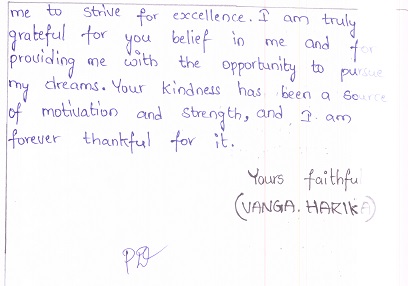 me to strive for excellence. I am truly
grateful for you belief in me and for
providing me with the opportunity to pursue
my dreams. Your kindness has been a source
of motivation and strength, and I am
forever thankful for it.
Yours faithfu
(VANGA. HARIKA)